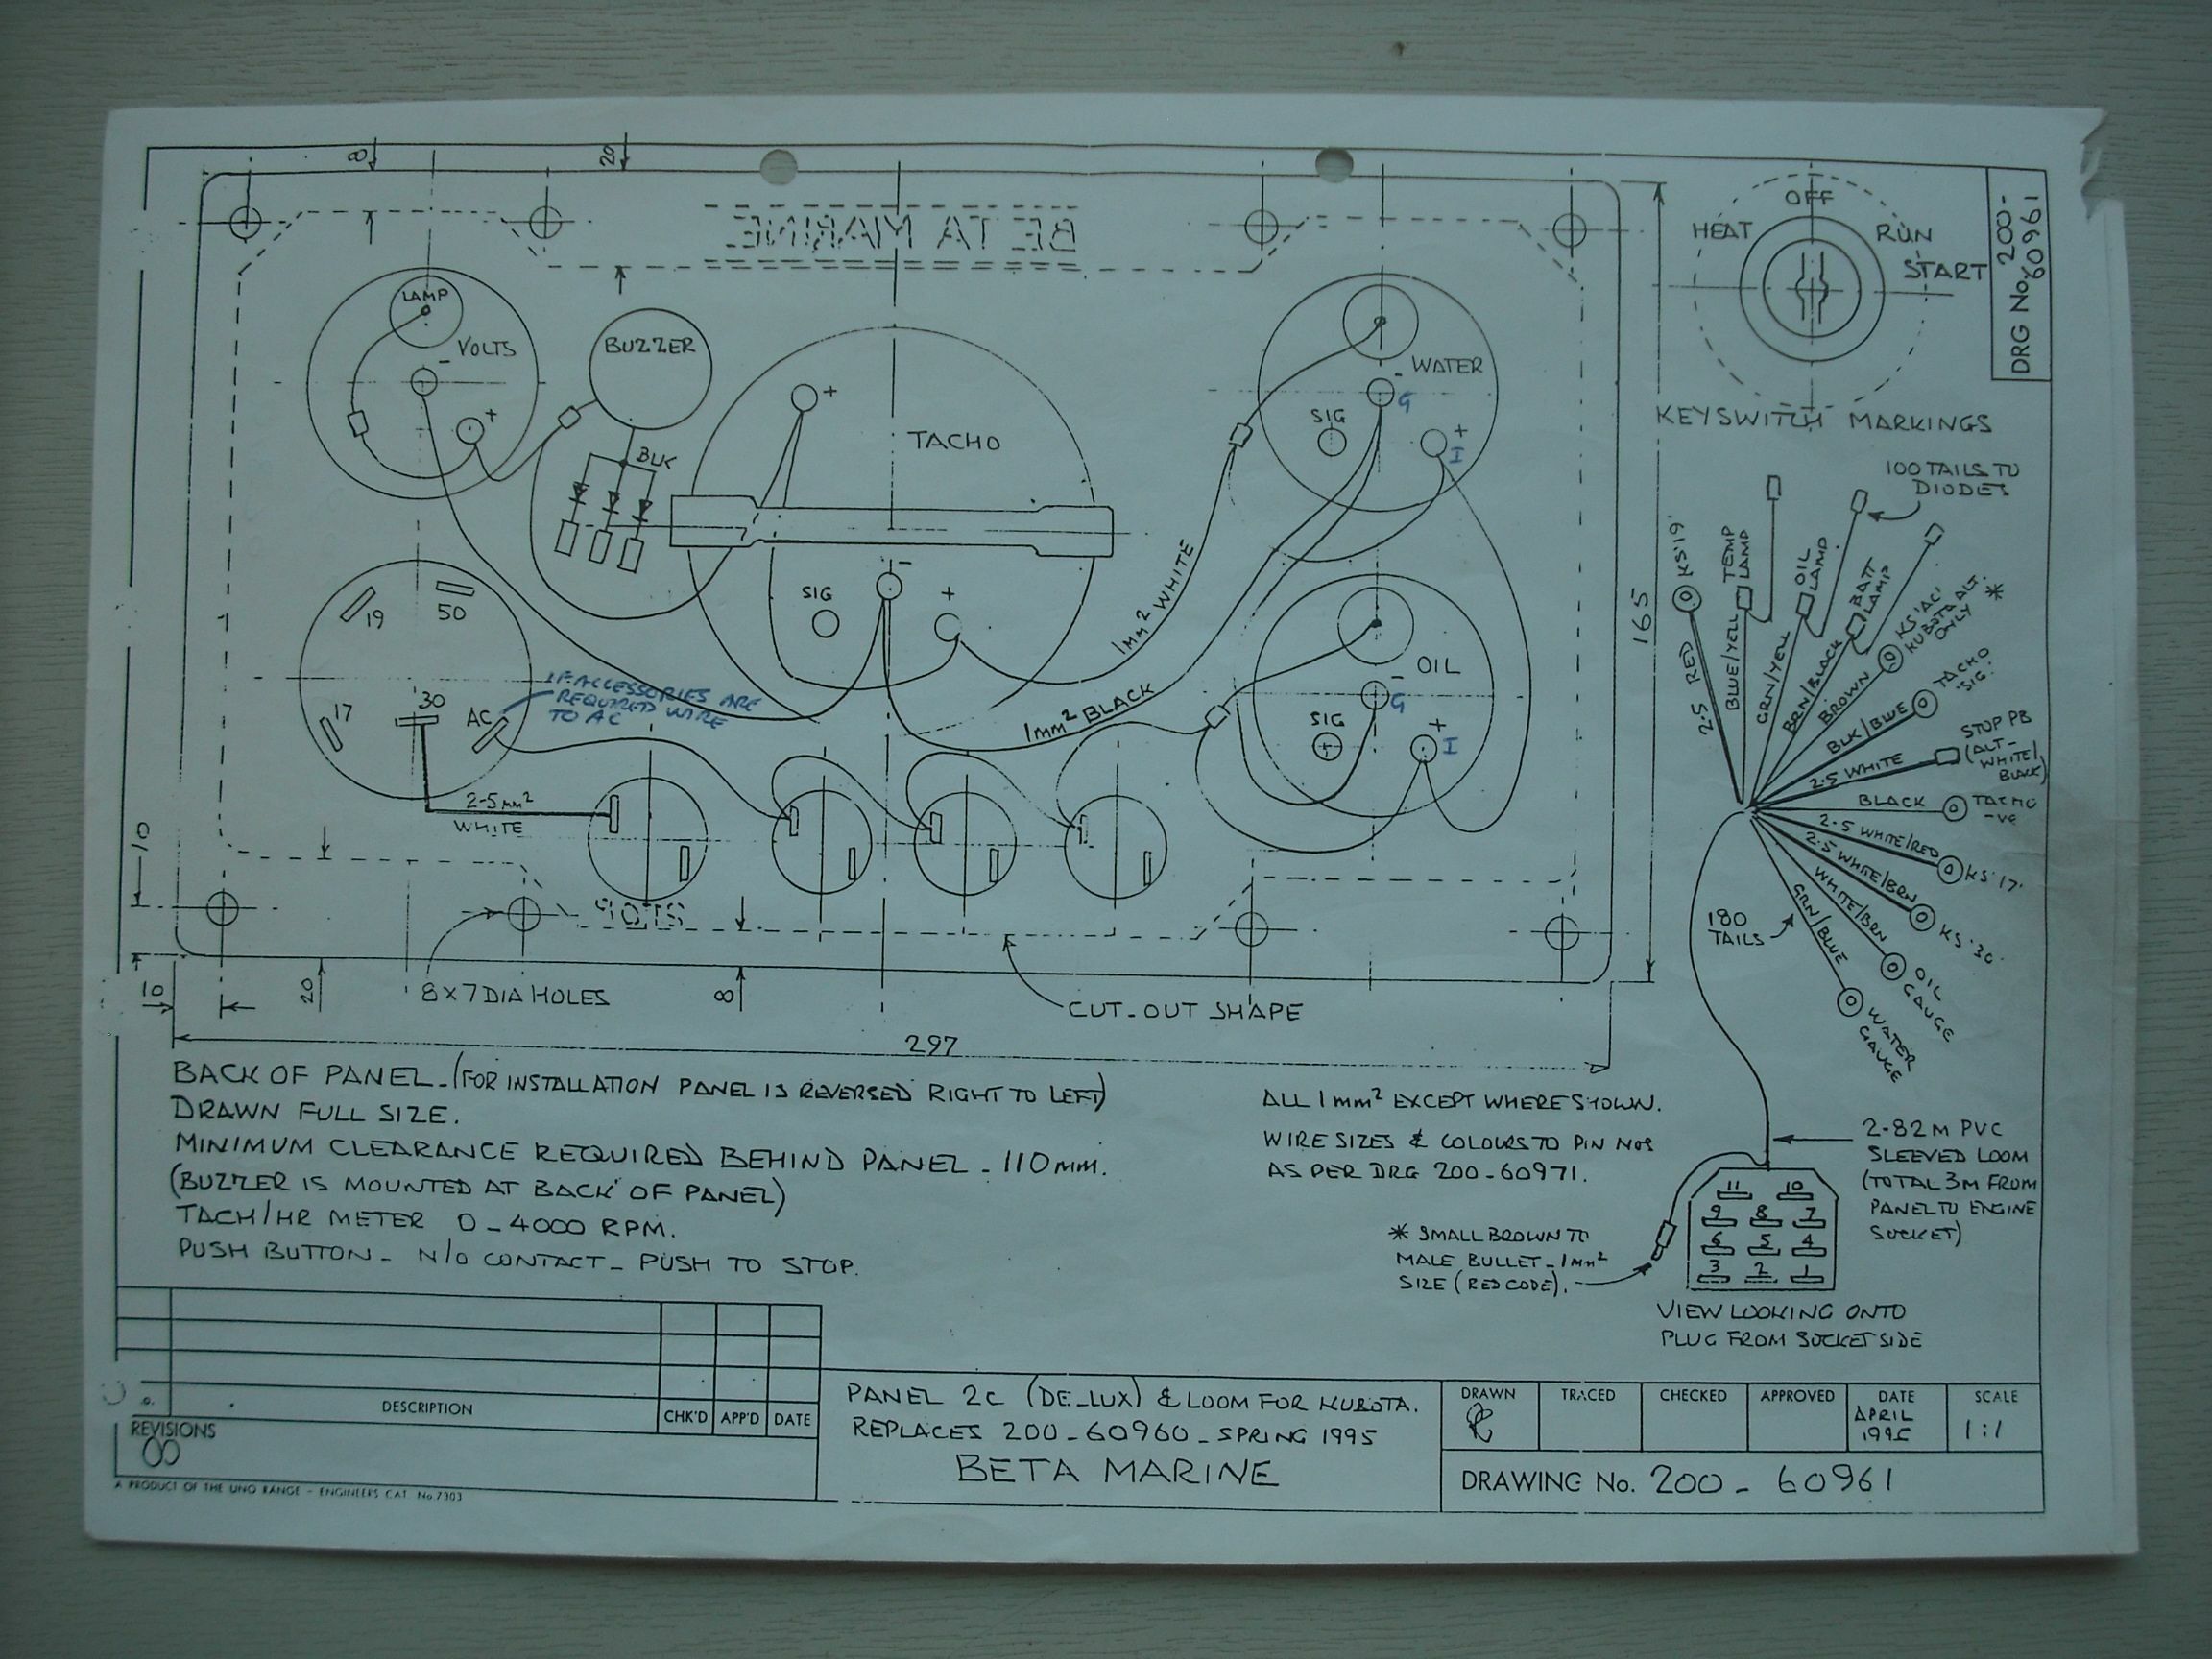 8
20
BETA MARINE
LAMP
VOLTS
-
+
BUZZER
BLK
+
TACHO
SIG
-
+
WATER
-
G
SIG
+
I
1mm² WHITE
1mm² BLACK
OIL
-
G
SIG
+
I
19
50
17
30
AC
IF ACCESSORIES ARE
REQUIRED WIRE
TO AC
2-5mm²
WHITE
STOP
10
10
20
8 X 7 DIA HOLES
8
CUT-OUT SHAPE
297
165
OFF
HEAT
RUN
START
KEYSWITCH MARKINGS
DRG No. 200-
60961
100 TAILS TO
DIODES
2.5 RED
KS'19'
BLUE/YELL
TEMP
LAMP
GRN/YELL
OIL
LAMP
BRN/BLACK
BATT
LAMP
BROWN
KS 'AC'
KUBOTA ALT.
ONLY *
BLK/BLUE
TACHO
SIG.
2.5 WHITE
STOP PB
(ALT-
WHITE/
BLACK)
BLACK
TACHO
-VE
2.5 WHITE/RED
KS'17'
2.5 WHITE/BRN
KS '30'
WHITE/BRN
OIL
GAUGE
GRN/BLUE
WATER
GAUGE
180
TAILS
BACK OF PANEL - (FOR INSTALLATION PANEL IS REVERSED RIGHT TO LEFT)
DRAWN FULL SIZE.
MINIMUM CLEARANCE REQUIRED BEHIND PANEL - 110mm.
(BUZZER IS MOUNTED AT BACK OF PANEL)
TACH/HR METER 0-4000 RPM.
PUSH BUTTON - N/O CONTACT - PUSH TO STOP.
ALL 1mm² EXCEPT WHERE SHOWN.
WIRE SIZES & COLOURS TO PIN NOS
AS PER DRG 200-60971.
* SMALL BROWN TO
MALE BULLET - 1mm²
SIZE (RED CODE).
2-82 M PVC
SLEEVED LOOM
(TOTAL 3M FROM
PANEL TO ENGINE
SOCKET)
11 10
9 8 7
6 5 4
3 2 1
VIEW LOOKING ONTO
PLUG FROM SOCKET SIDE
DESCRIPTION
CHK'D
APP'D
DATE
REVISIONS
A PRODUCT OF THE UNO RANGE - ENGINEERS CAT. No.7303
PANEL 2C (DE-LUX) & LOOM FOR KUBOTA.
REPLACES 200-60960 - SPRING 1995
BETA MARINE
DRAWN
TRACED
CHECKED
APPROVED
DATE
APRIL
1995
SCALE
1:1
DRAWING No. 200-60961